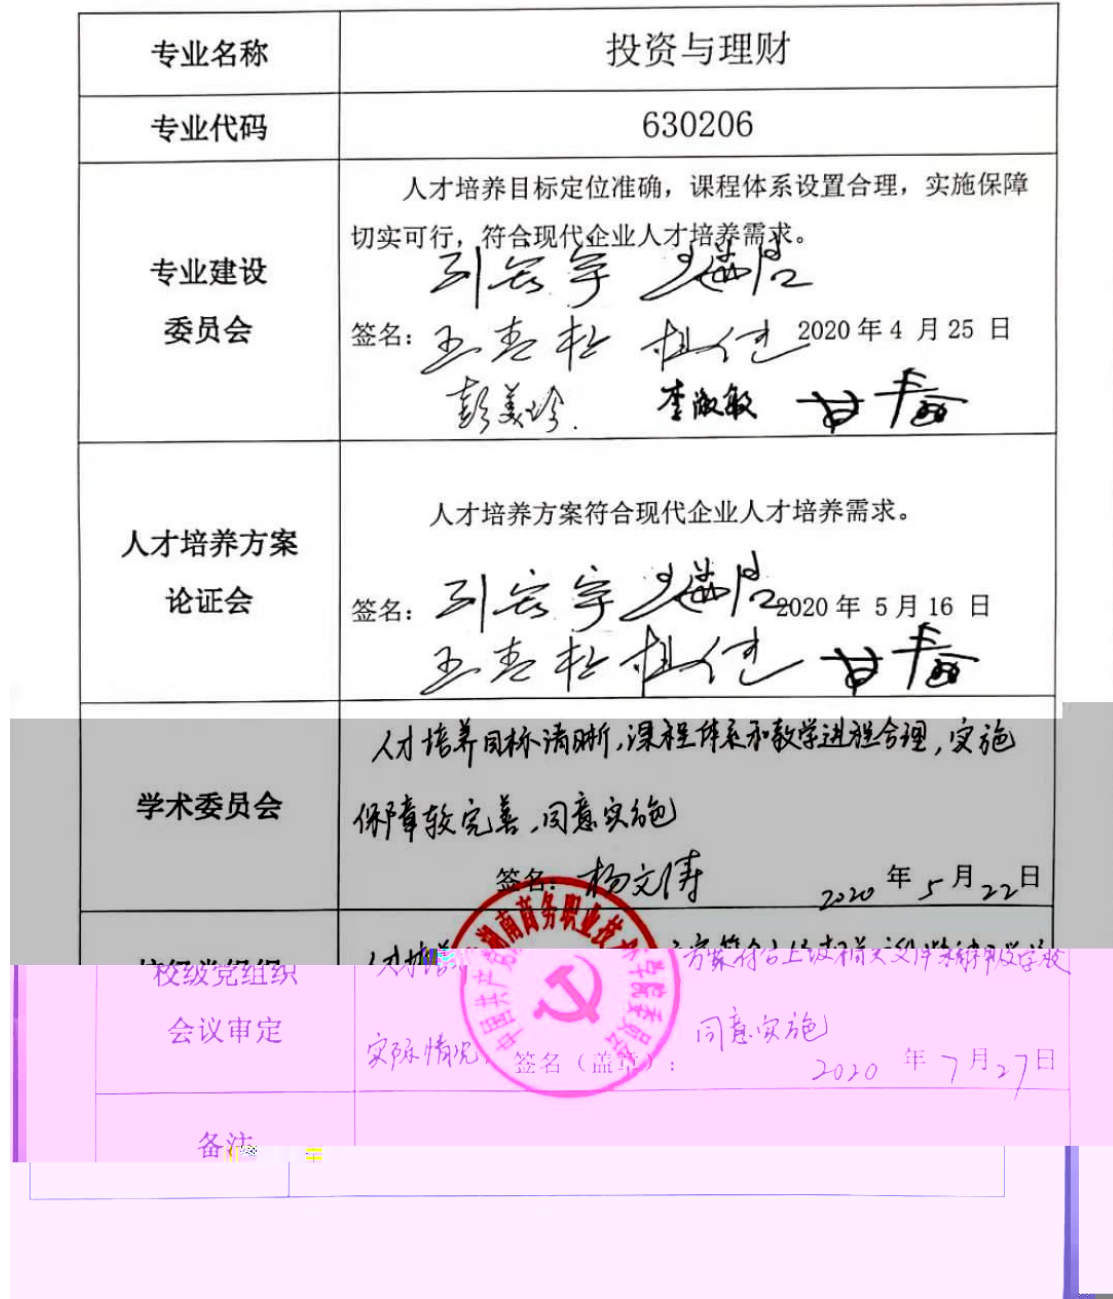 专业名称
投资与理财
专业代码
630206
专业建设
委员会
人才培养目标定位准确，课程体系设置合理，实施保障
切实可行，符合现代企业人才培养需求。
刘宏宇
签名：
王春松 杜健
2020 年 4 月 25 日
彭美玲 李淑敏
人才培养方案
论证会
人才培养方案符合现代企业人才培养需求。
刘宏宇
签名：
2020 年 5 月 16 日
王春松 杜健
学术委员会
人才培养目标清晰，课程体系和教学进程合理，实施
保障较完善，同意实施
签名：杨文涛
2020 年 5 月 22 日
校级党组织
会议审定
人才培养
方案符合上级相关文件精神及学校
实际情况，
同意实施
签名（盖章）：
2020 年 7 月 27 日
中国共产党湖南商务职业技术学院委员会
备注